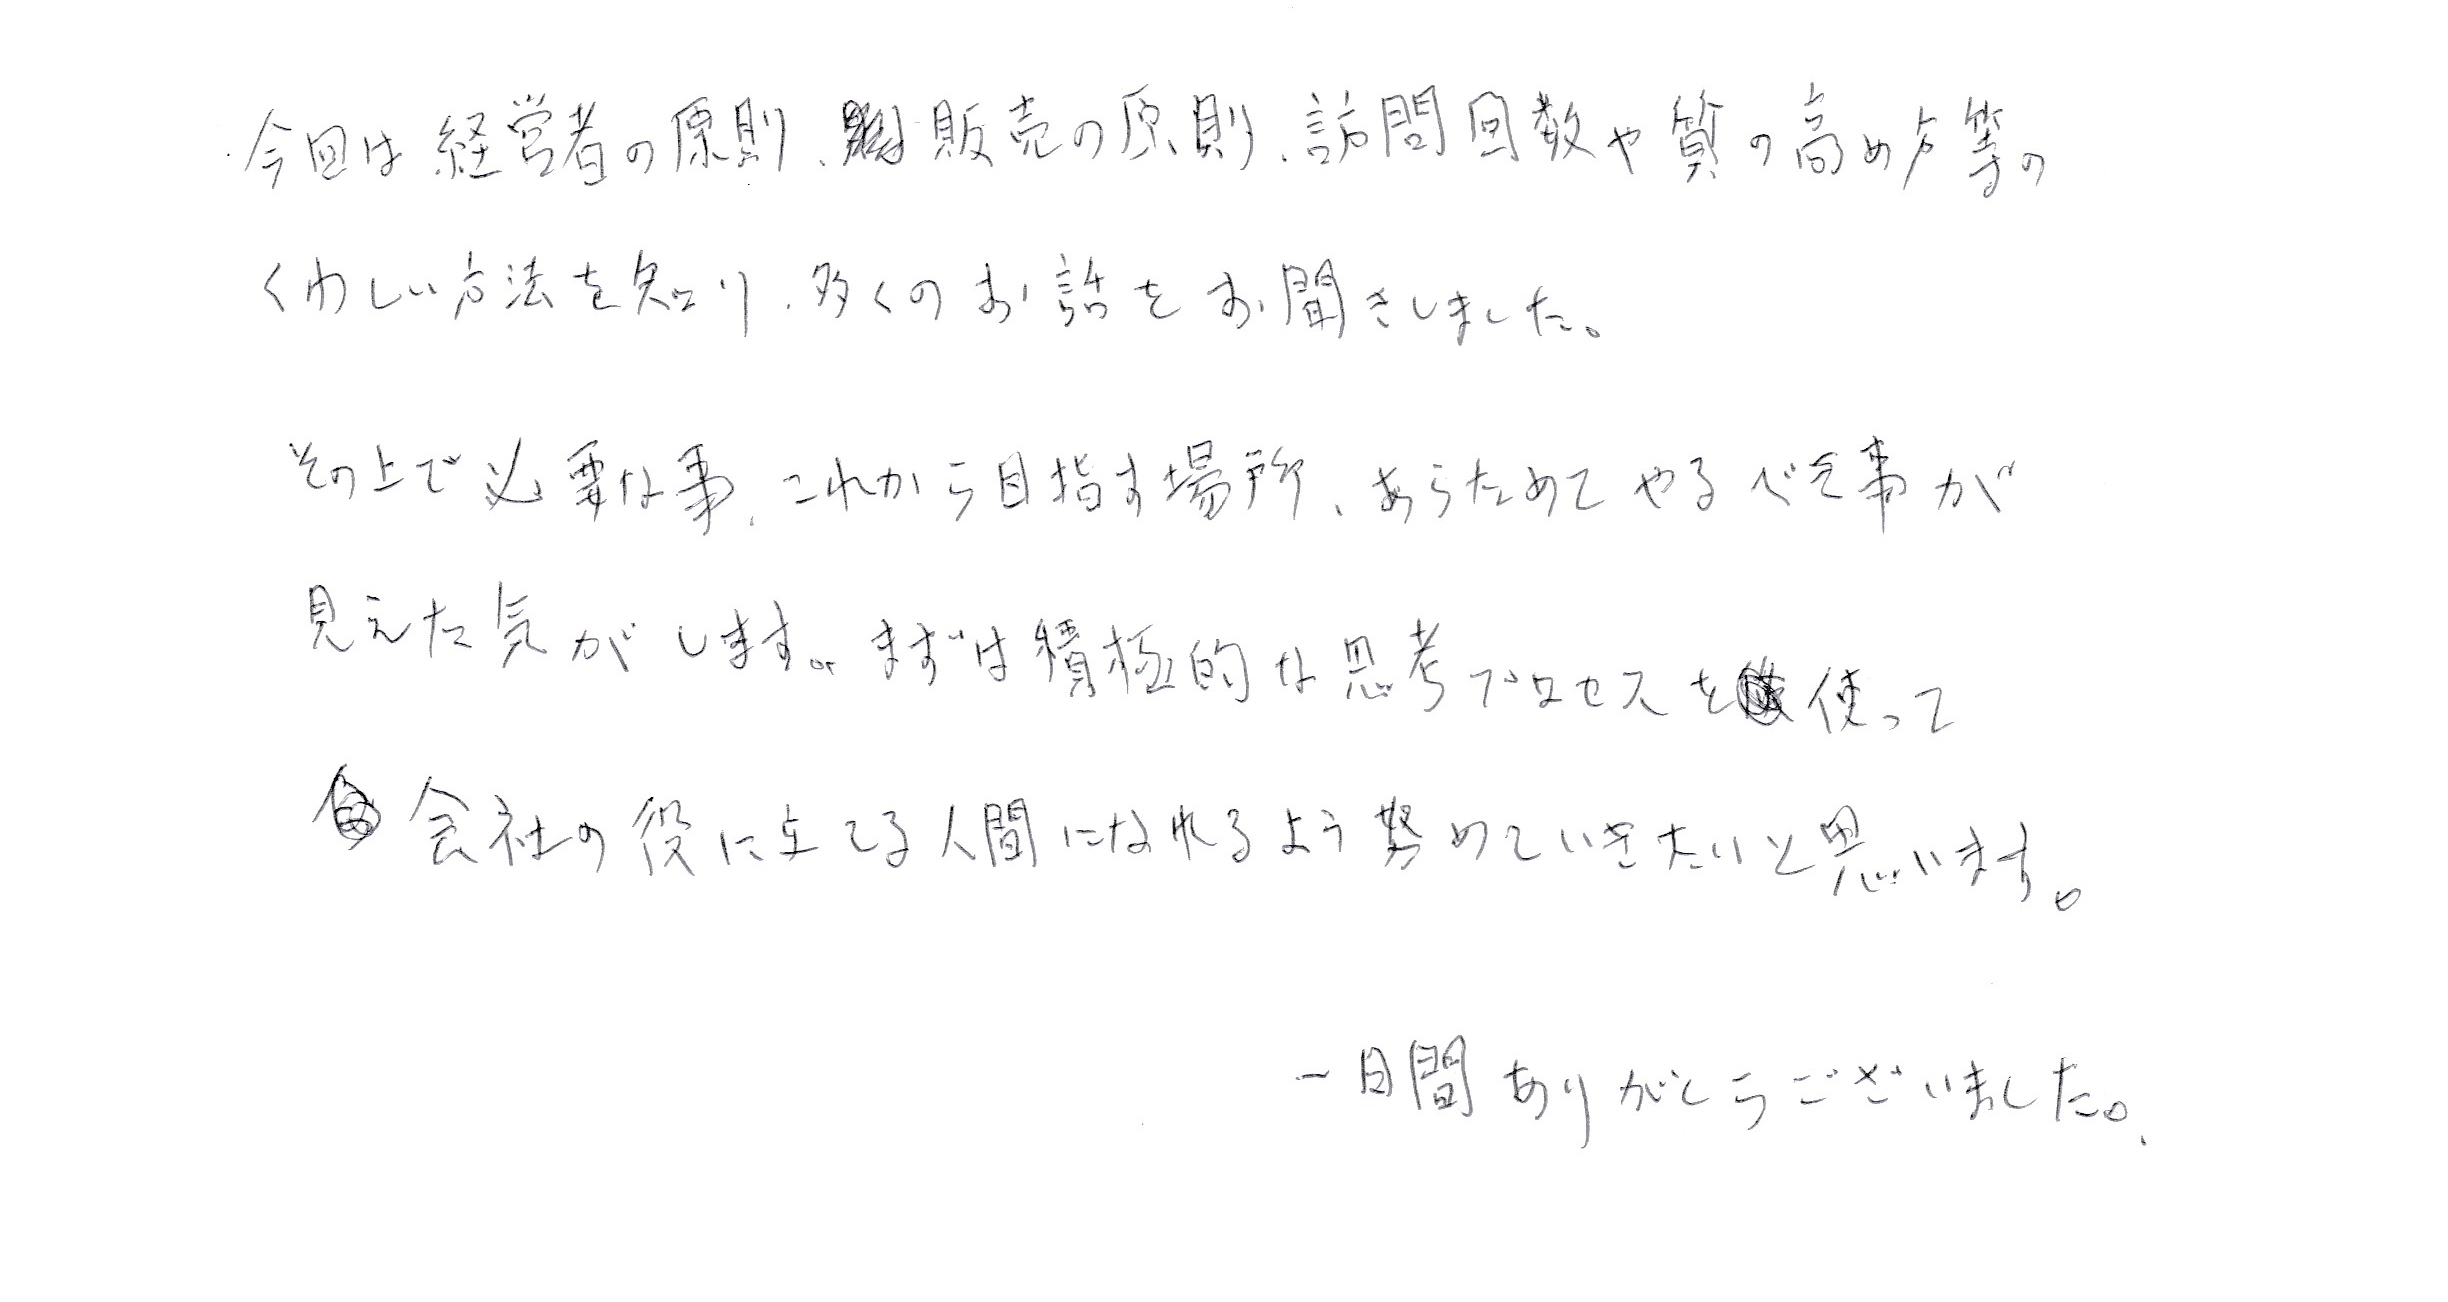 今回は経営者の原則、販売の原則、訪問回数や質の高め方等の
くわしい方法を知り、多くのお話をお聞きしました。
その上で必要な事、これから目指す場所、あらためてやるべき事が
見えた気がします。まずは積極的な思考プロセスを使って
会社の役に立てる人間になれるよう努めていきたいと思います。
一日間ありがとうございました。